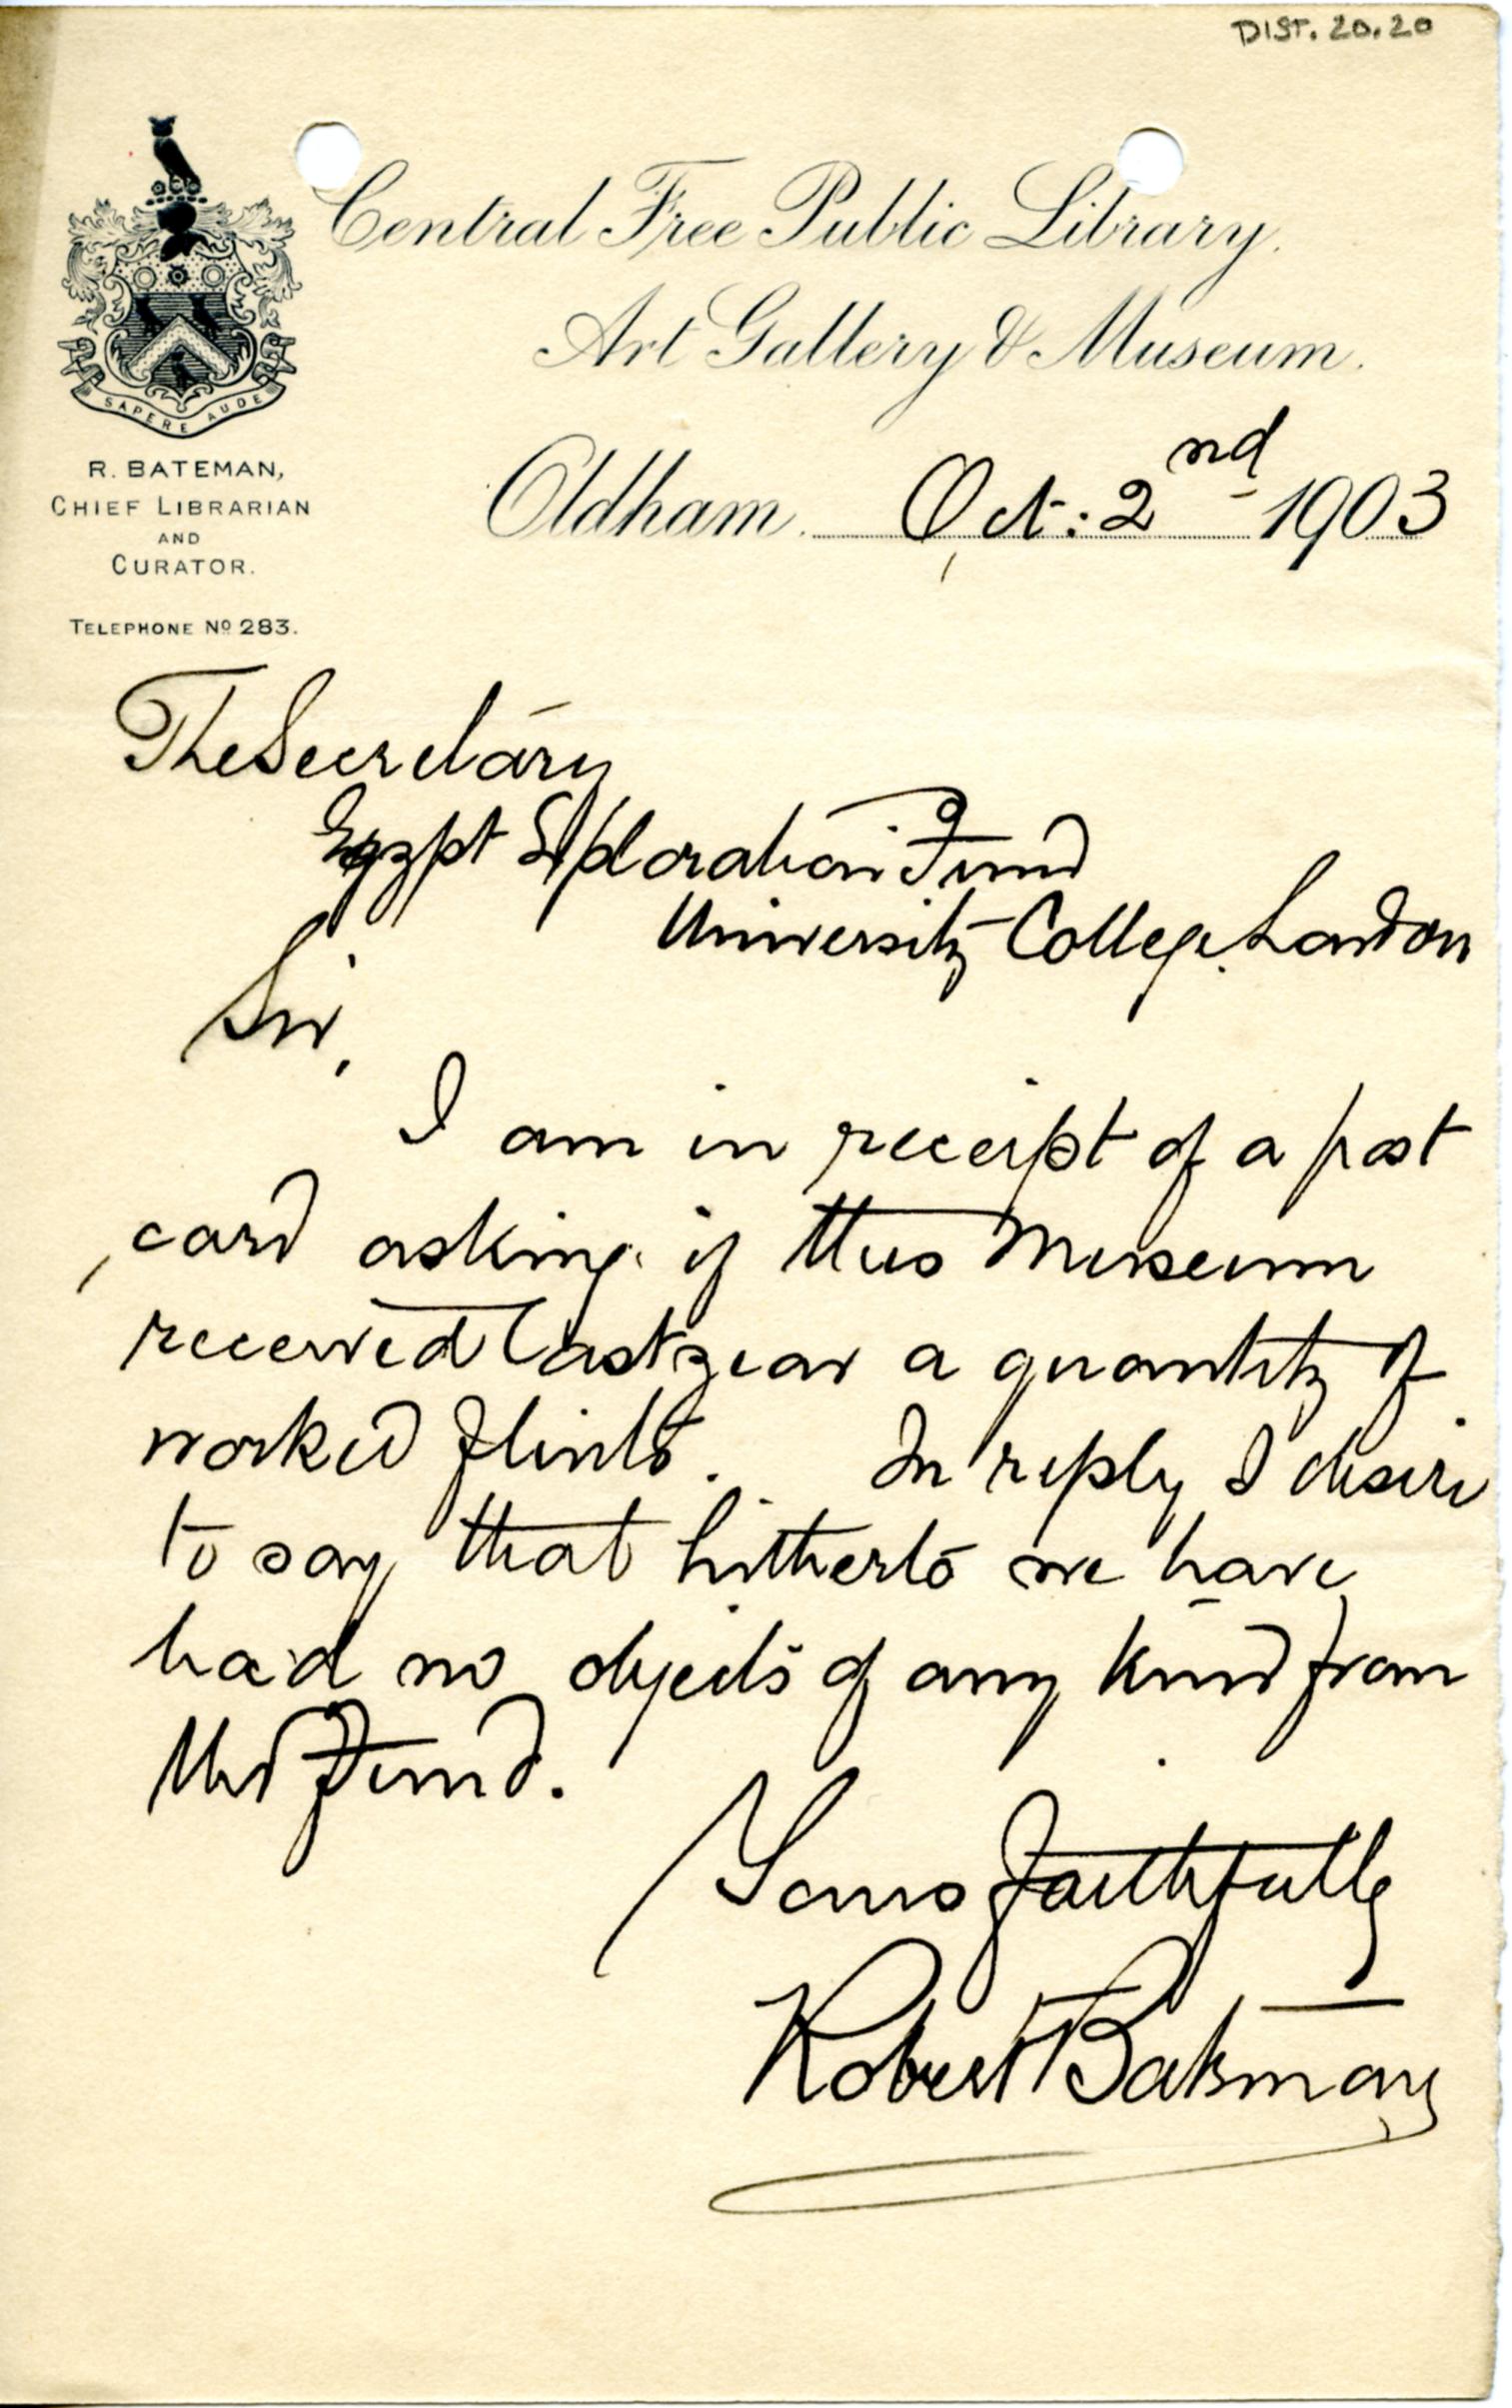 DIST. 20.20
Central Free Public Library.
Art Gallery & Museum.
SAPERE AUDE
R. BATEMAN,
CHIEF LIBRARIAN
AND
CURATOR.
TELEPHONE No 283.
Oldham. Oct: 2nd 1903
The Secretary
Egypt Exploration Fund
University College, London
Sir,
I am in receipt of a post
card asking if this Museum
received last year a quantity of
worked flints. In reply I desire
to say that hitherto we have
had no objects of any kind from
the Fund.
Yours faithfully
Robert Bateman